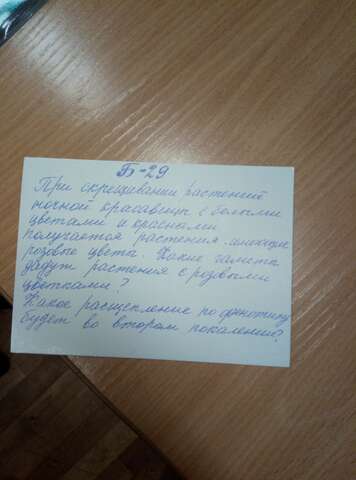 Б-29
При скрещивании растений
ночной красавицы с белыми
цветами и красными
получаются растения имеющие
розовые цвета. Какие гаметы
дадут растения с розовыми
цветками?
Какое расщепление по фенотипу
будет во втором поколении?